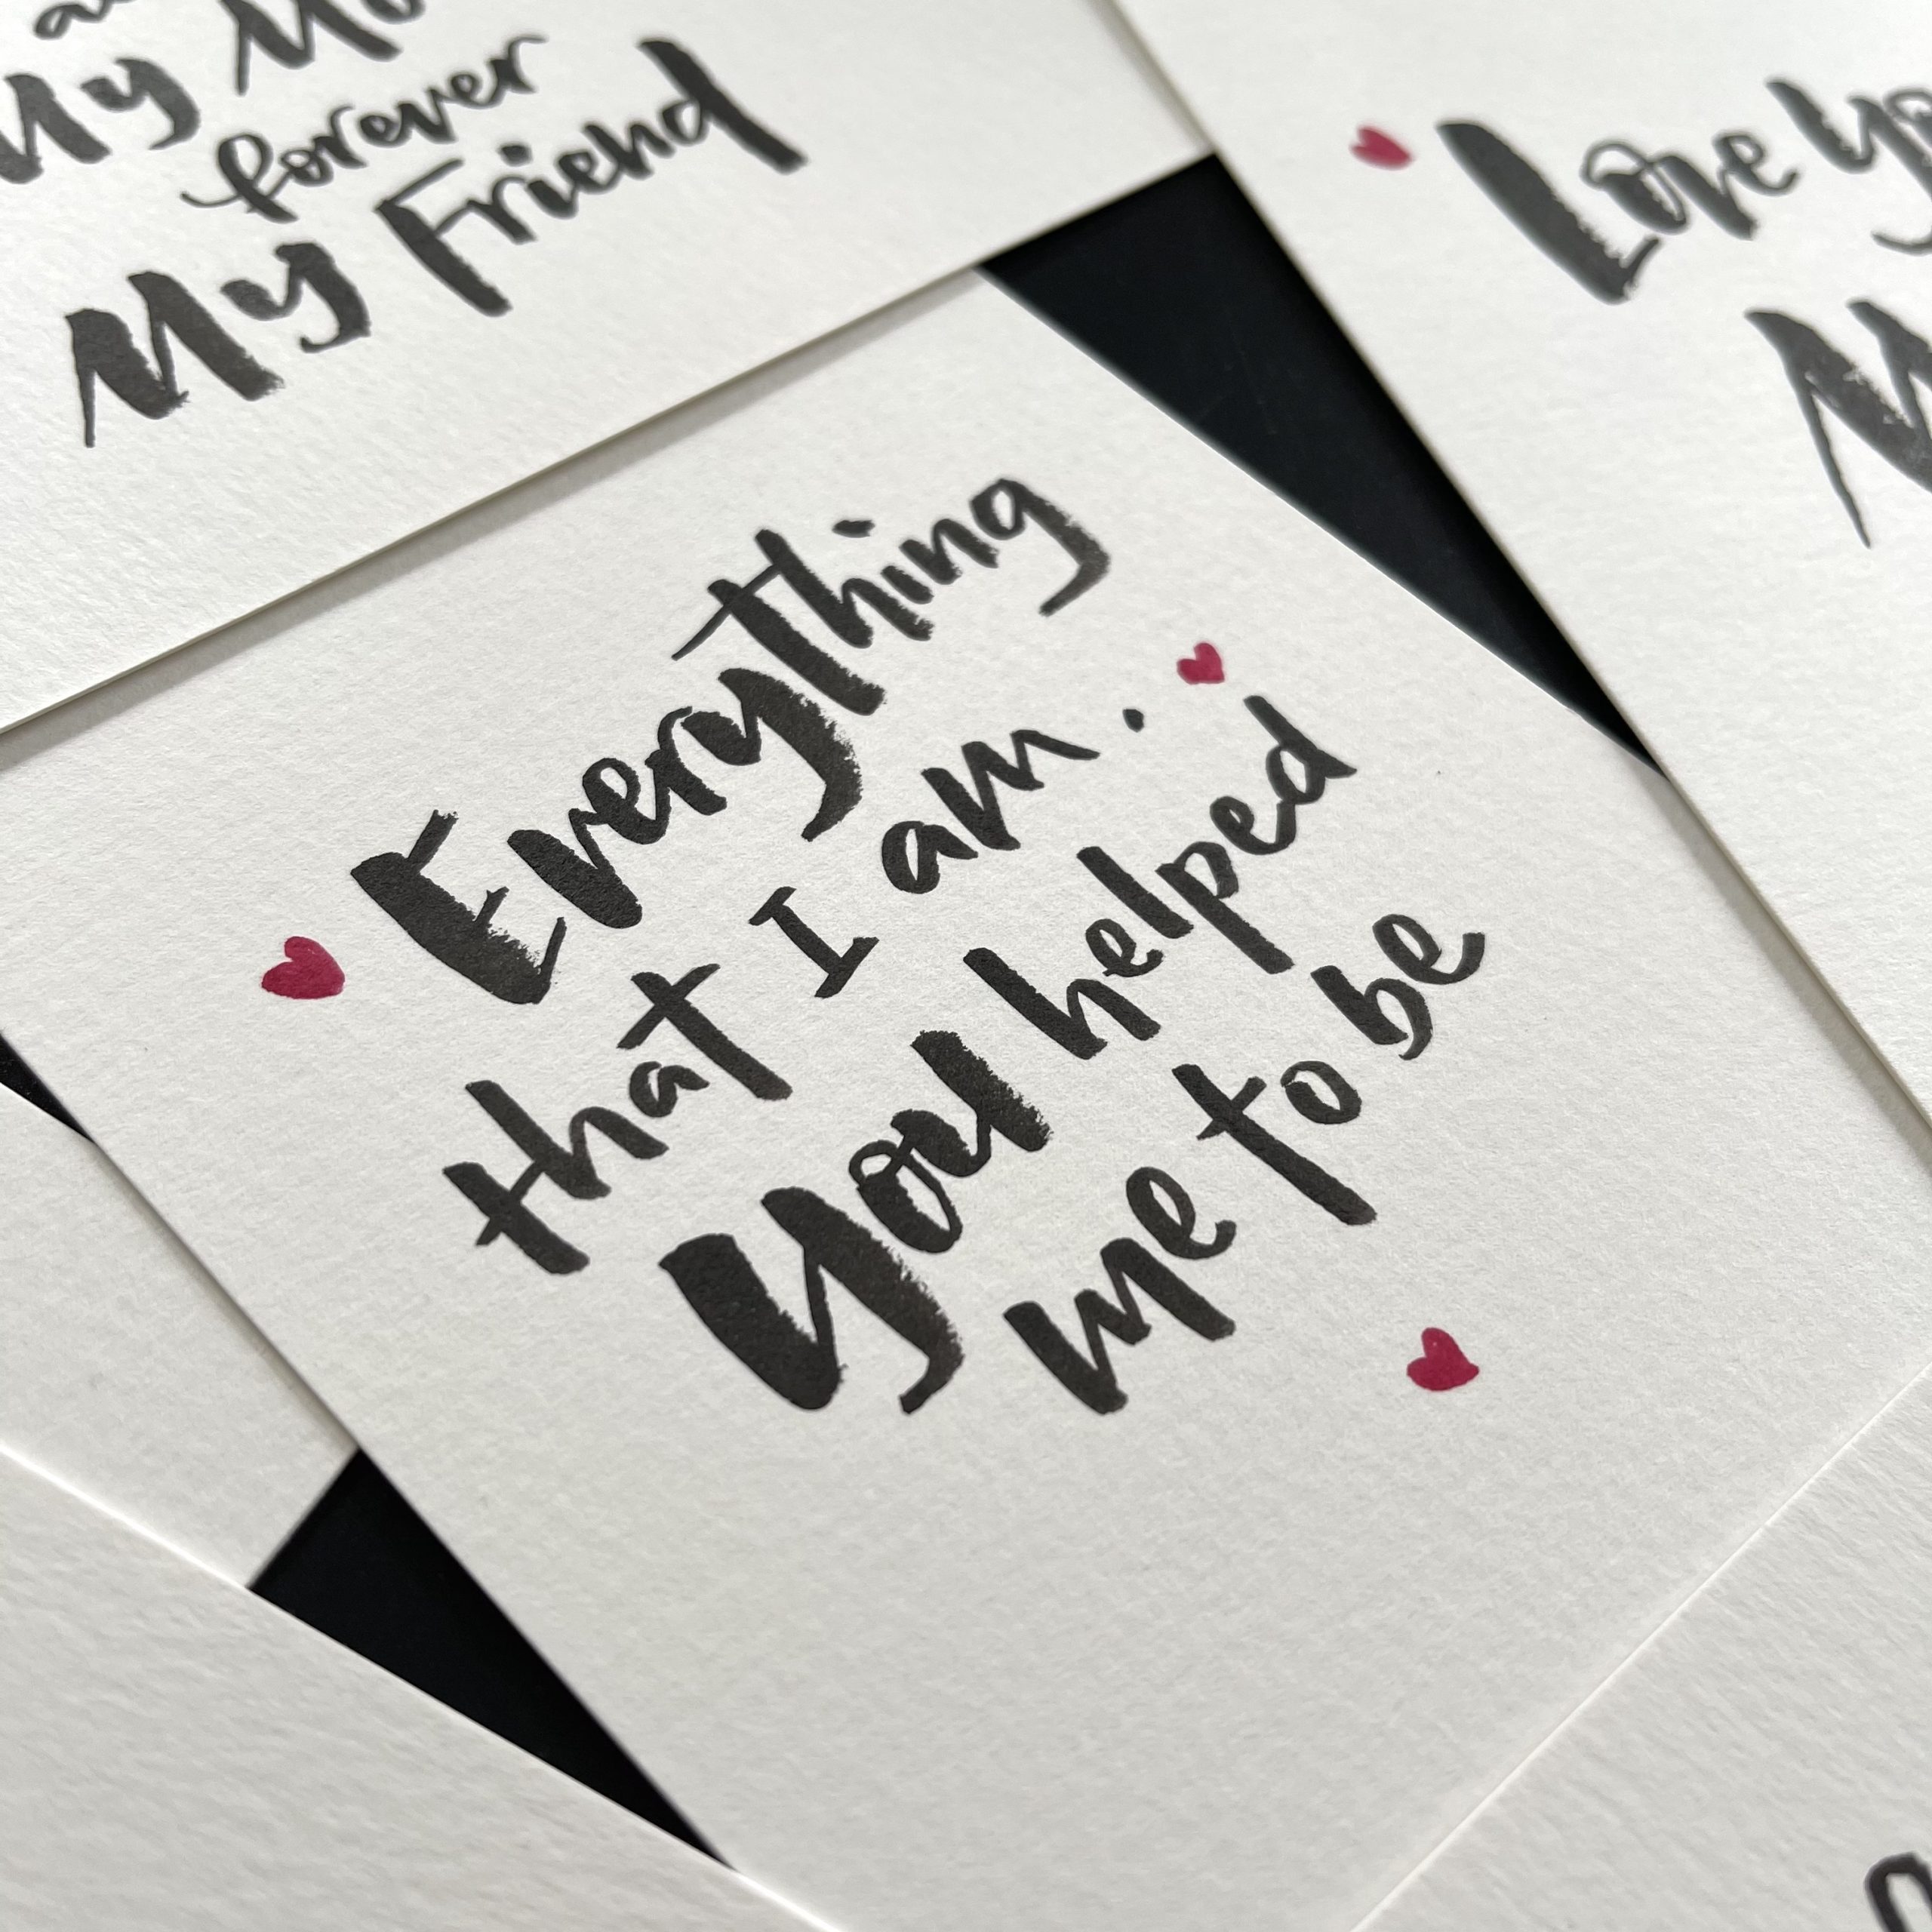 My
forever
My Friend
Love
Everything
that I am.
you helped
me to be